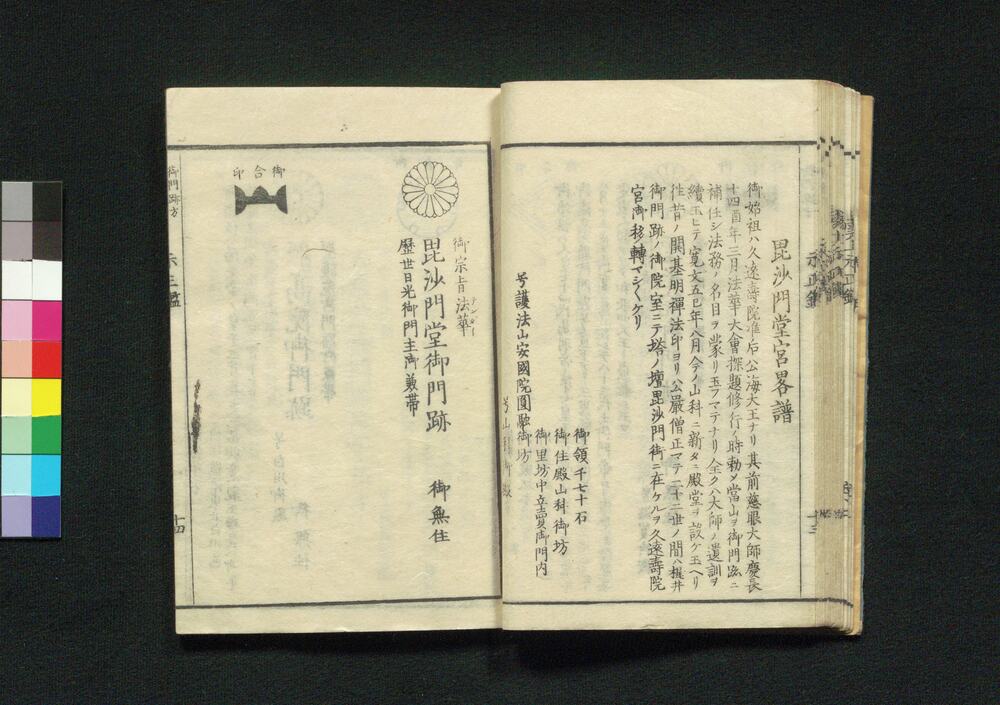 毘沙門堂宮畧譜
御始祖ハ久遠壽院准后公海大王ナリ其前慈眼大師慶長
十四酉年三月法華大會探題修行ノ時勅メ當山ヲ御門跡ニ
補任シ法務ノ名目ヲ蒙リ玉フマテナリ全ク八大師ノ遺訓ヲ
續玉ヒテ寛文五巳年八月今ノ山科ニ新タニ殿堂ヲ設ケ玉ヘリ
往昔ノ開基明禪法印ヨリ公嚴僧正マテ二十二世ノ間ハ梶井
御門跡ノ御院室ニテ塔ノ壇毘沙門街ニ在ケルヲ久遠壽院
宮御移轉マシ〱ケリ
御領千七十石
御住殿山科御坊
御里坊中立賣御門内
号護法山安國院圓融御坊
十三
御宗旨法華
毘沙門堂御門跡 御無住
歷世日光御門主御兼帶
御合印
御門跡方
十四